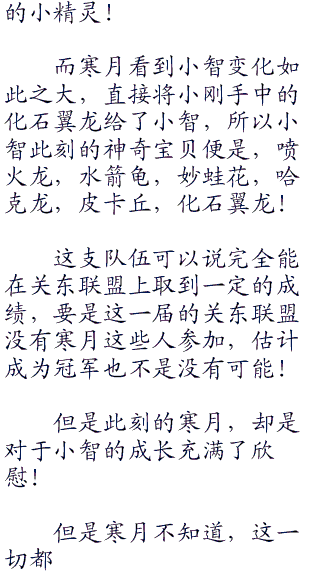 的小精灵！
而寒月看到小智变化如
此之大，直接将小刚手中的
化石翼龙给了小智，所以小
智此刻的神奇宝贝便是，喷
火龙，水箭龟，妙蛙花，哈
克龙，皮卡丘，化石翼龙！
这支队伍可以说完全能
在关东联盟上取到一定的成
绩，要是这一届的关东联盟
没有寒月这些人参加，估计
成为冠军也不是没有可能！
但是此刻的寒月，却是
对于小智的成长充满了欣
慰！
但是寒月不知道，这一
切都